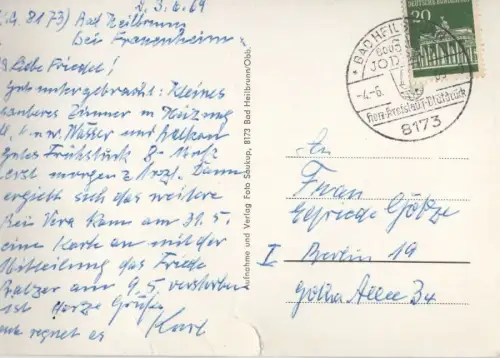 8173) Bad Heilbrunn 2, 3.6.69
bei
Liebe Friedel!
Gut untergebracht: Kleines
sauberes Zimmer m Heizung
k. u. w. Wasser und Balkon
gutes Frühstück
erst morgen z Arzt. Dann
ergiebt sich das weitere
Bei Vera kam am 31.5.
eine Karte an mit der
Mitteilung das Friede
Balzer am 9.5 verstorben
ist Herzl Grüße
regnet es Karl
Aufnahme und Verlag Foto Saukup, 8173 Bad Heilbrunn/Obb.
DEUTSCHE BUNDESPOST
20
BAD HEIL
JOD
-4.-6.
Herz-Kreislauf-Blutdruck
8173
An
Frau
Elfriede Götze
I Berlin 19
Gotha Allee 34